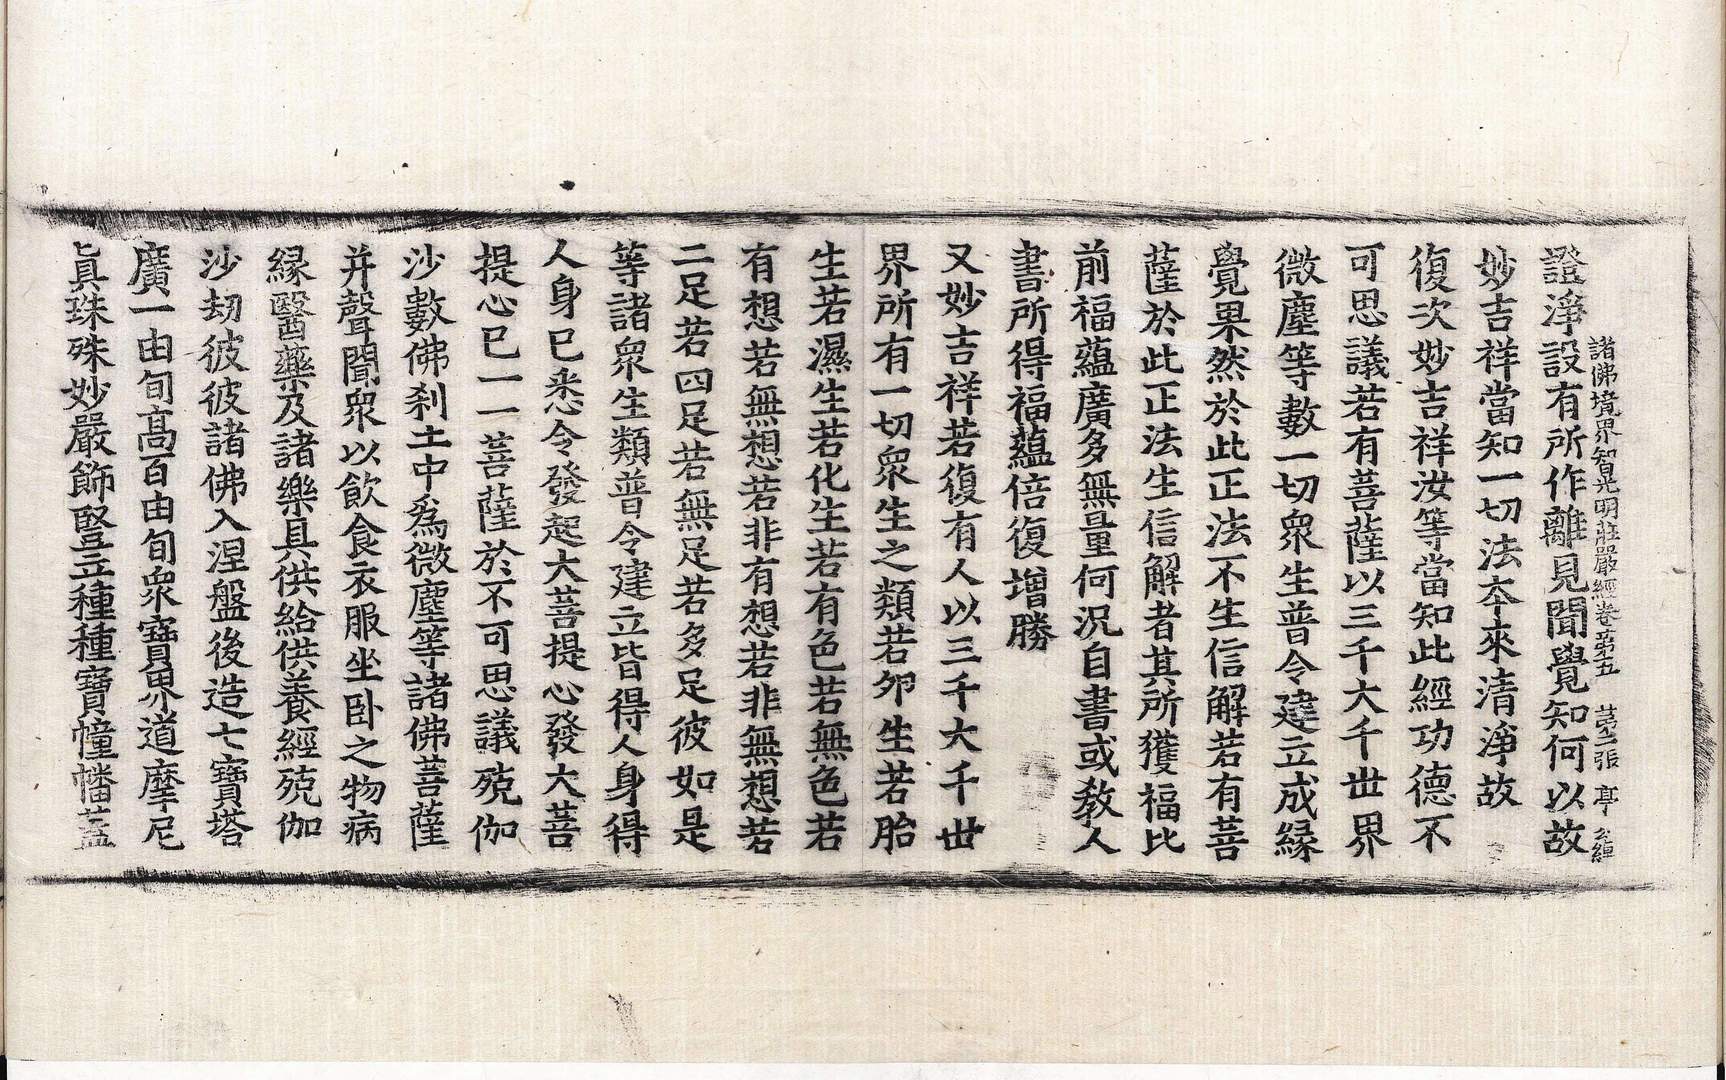 諸佛境界智光明莊嚴經卷第五 第二張 亭
證淨設有所作離見聞覺知何以故
妙吉祥當知一切法本來清淨故
復次妙吉祥汝等當知此經功德不
可思議若有菩薩以三千大千世界
微塵等數一切衆生普令建立成緣
覺果然於此正法不生信解若有菩
薩於此正法生信解者其所獲福比
前福蘊廣多無量何況自書或教人
書所得福蘊倍復增勝
又妙吉祥若復有人以三千大千世
界所有一切衆生之類若卵生若胎
生若濕生若化生若有色若無色若
有想若無想若非有想若非無想若
二足若四足若無足若多足彼如是
等諸衆生類普令建立皆得人身得
人身已悉令發起大菩提心發大菩
提心已一一菩薩於不可思議殑伽
沙數佛刹土中爲微塵等諸佛菩薩
并聲聞衆以飲食衣服坐卧之物病
緣醫藥及諸樂具供給供養經殑伽
沙劫彼彼諸佛入涅盤後造七寶塔
廣一由旬高百由旬衆寶界道摩尼
眞珠殊妙嚴飾豎立種種寶幢幡蓋